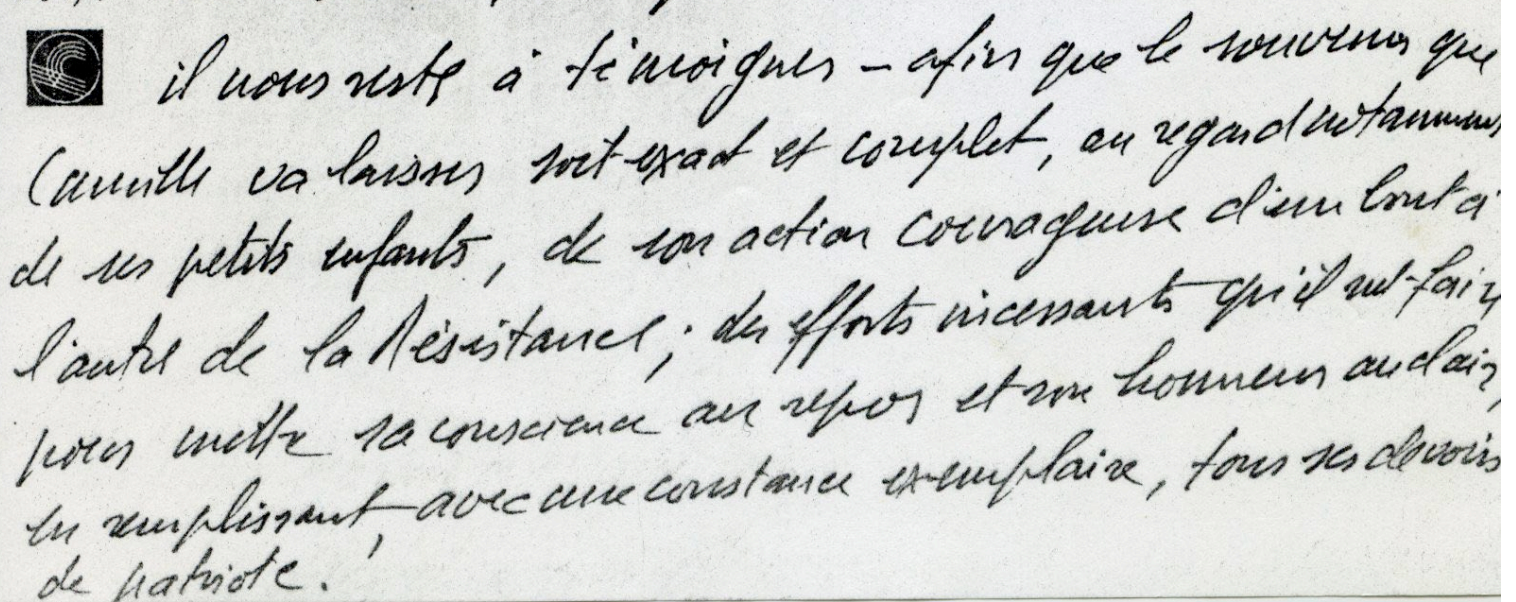 il nous reste à témoigner – afin que le souvenir que
Camille va laisser soit exact et complet, au regard notamment
de ses petits enfants, de son action courageuse d'un bout à
l'autre de la Résistance ; des efforts incessants qu'il sut faire
pour mettre sa conscience au repos et son honneur au clair,
en remplissant, avec une constance exemplaire, tous ses devoirs
de patriote.